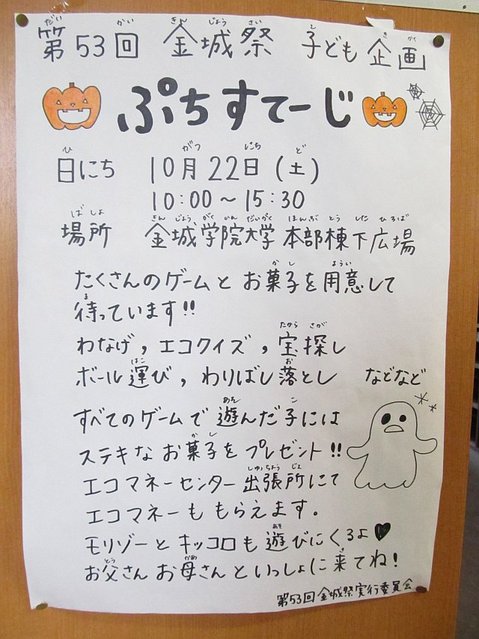 第53回 金城祭 子ども企画
ぷちすてーじ
日にち 10月22日(土)
10:00～15:30
場所 金城学院大学 本部棟下広場
たくさんのゲームとお菓子を用意して
待っています!!
わなげ,エコクイズ,宝探し
ボール運び,わりばし落とし などなど
すべてのゲームで遊んだ子には
ステキなお菓子をプレゼント!!
エコマネーセンター出張所にて
エコマネーももらえます。
モリゾーとキッコロも遊びにくるよ♥
お父さんお母さんといっしょに来てね!
第53回金城祭実行委員会